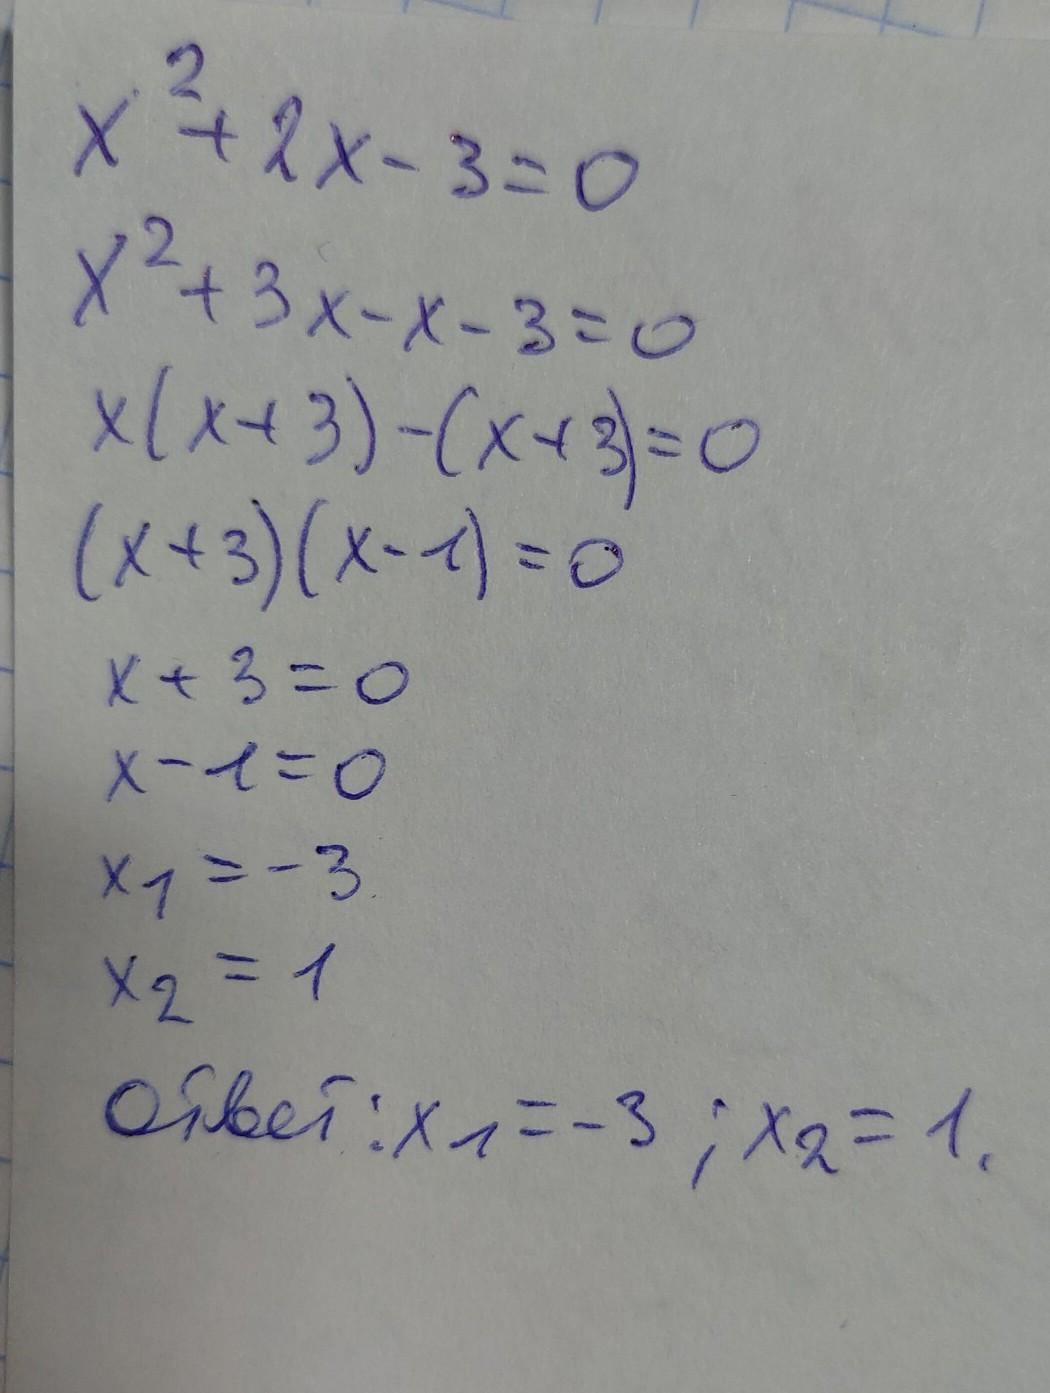 x² + 2x - 3 = 0
x² + 3x - x - 3 = 0
x(x+3) - (x+3) = 0
(x+3)(x-1) = 0
x + 3 = 0
x - 1 = 0
x₁ = -3
x₂ = 1
Ответ: x₁ = -3 ; x₂ = 1.